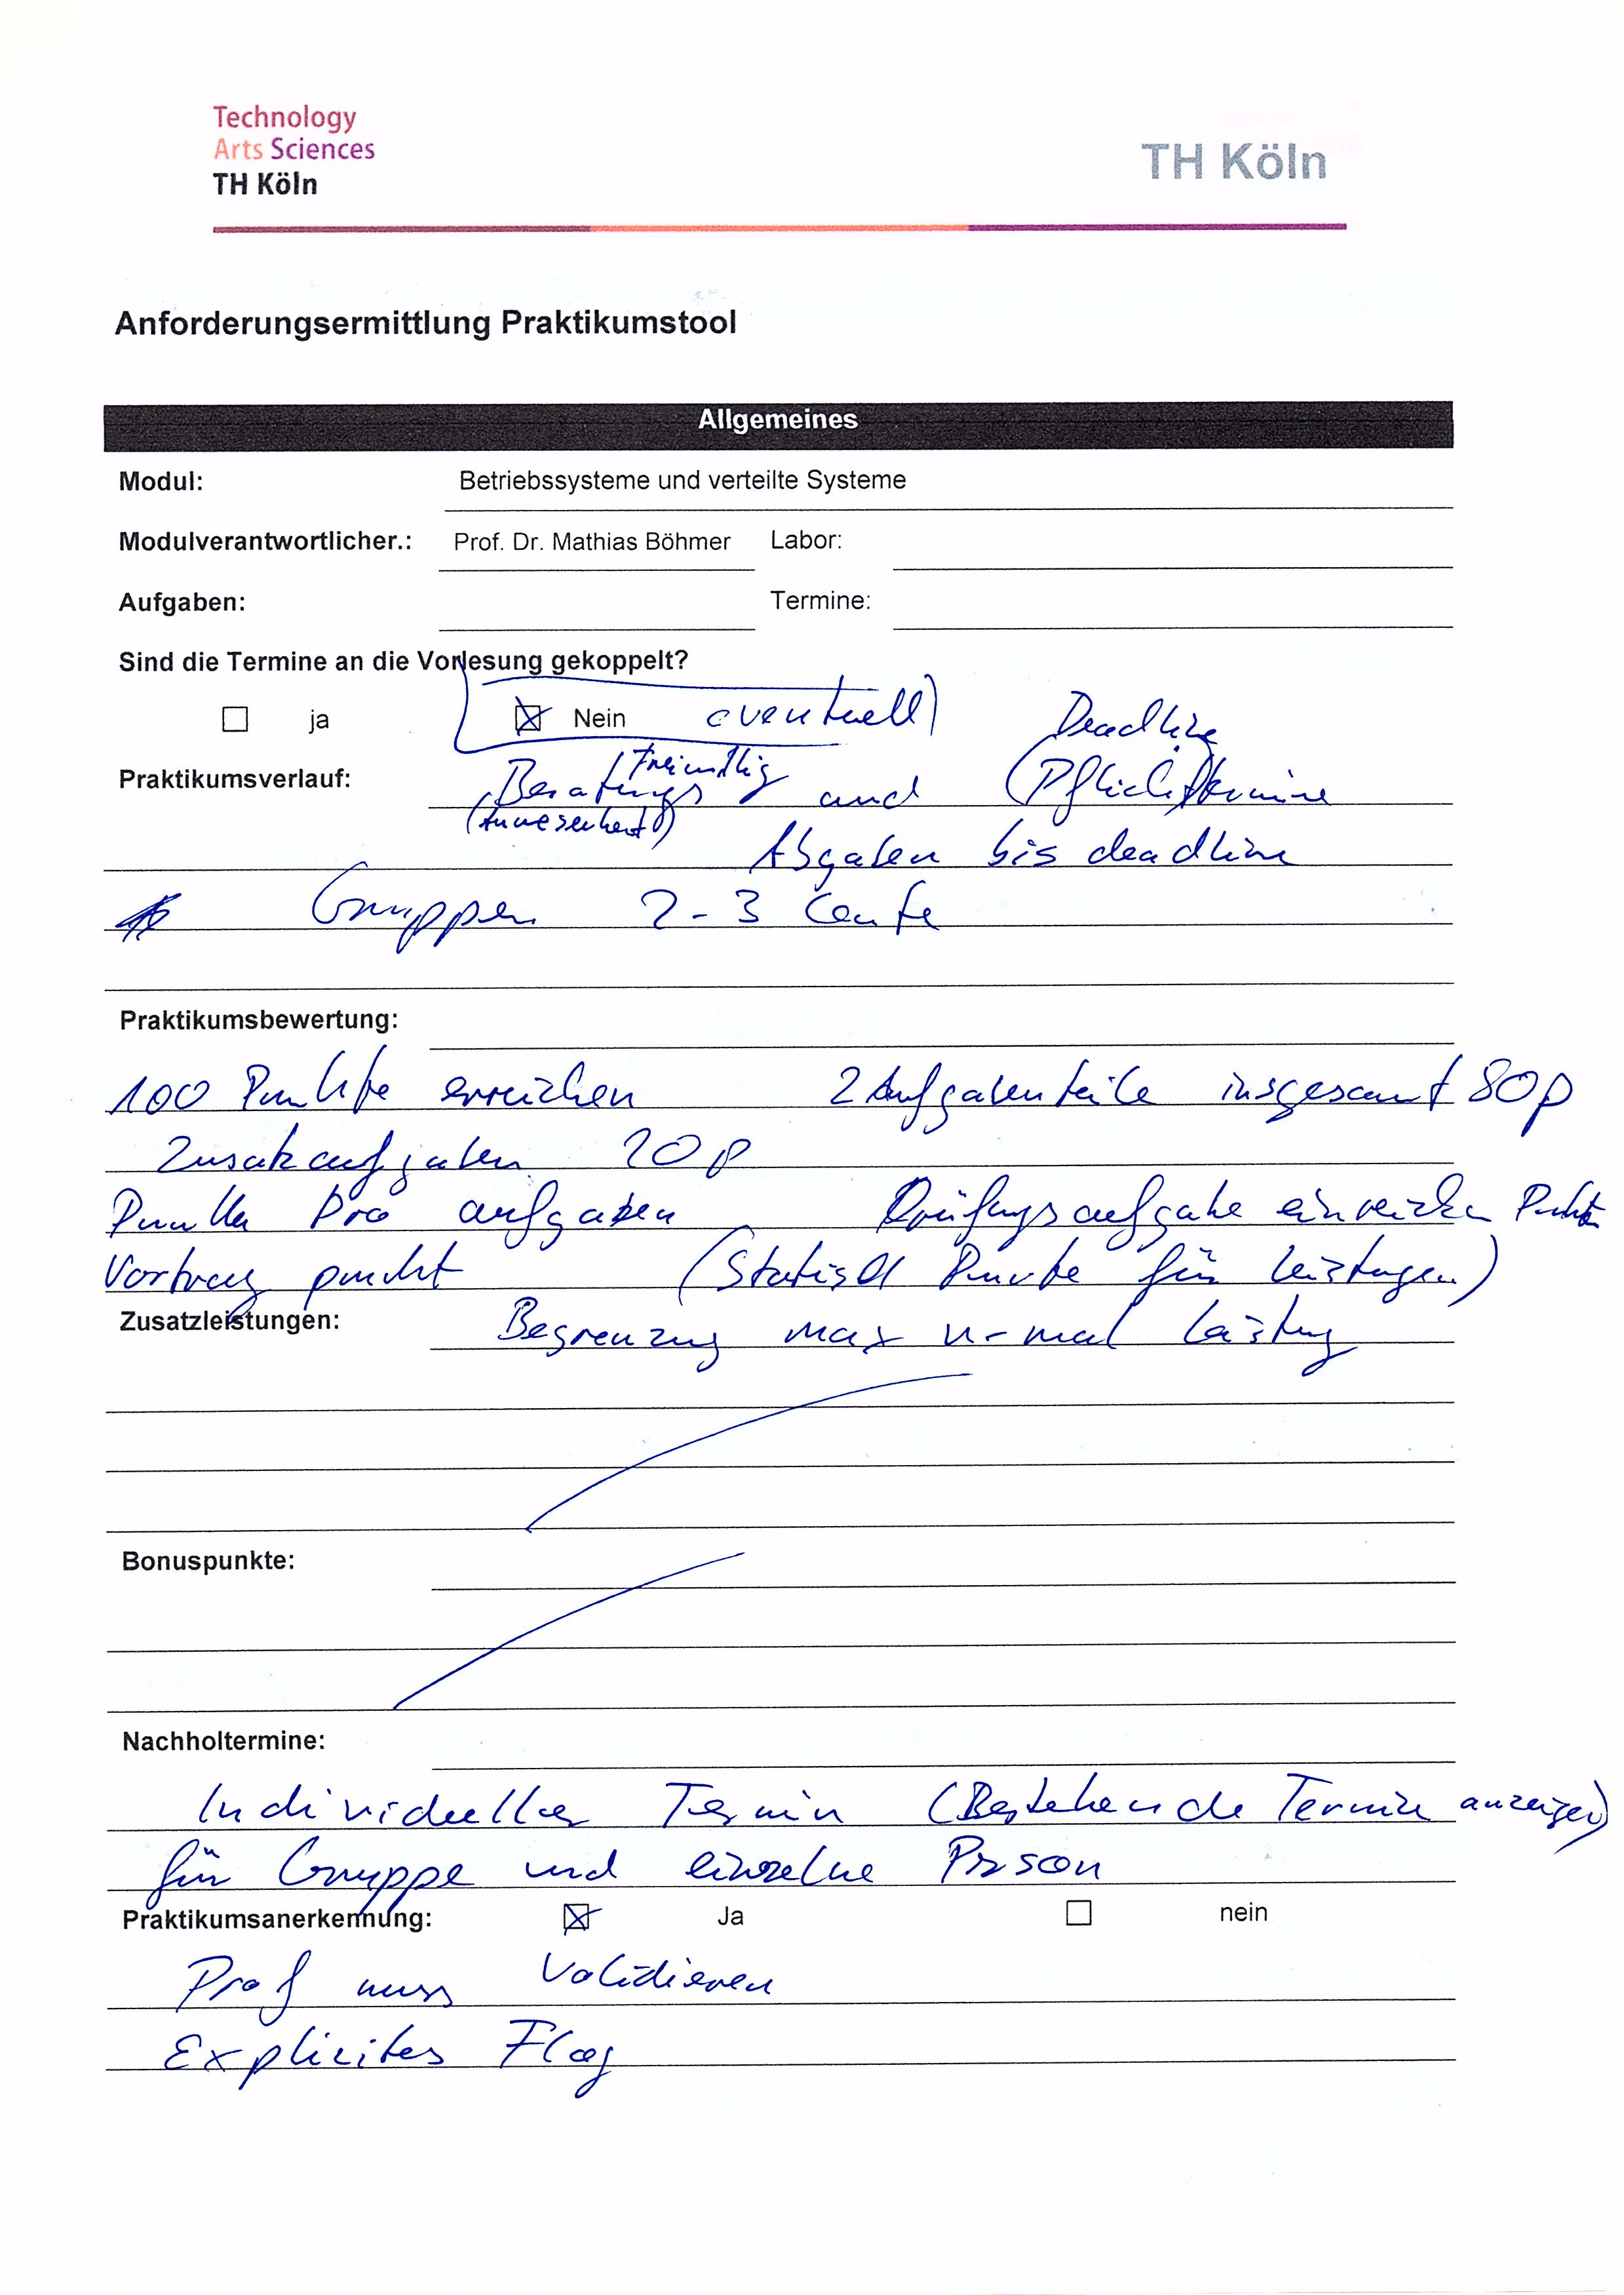 Technology
Arts Sciences
TH Köln
TH Köln
Anforderungsermittlung Praktikumstool
Allgemeines
Modul: Betriebssysteme und verteilte Systeme
Modulverantwortlicher.: Prof. Dr. Mathias Böhmer Labor:
Aufgaben: Termine:
Sind die Termine an die Vorlesung gekoppelt?
ja Nein eventuell)
Deadline
(freiwillig
Praktikumsverlauf: Beratungs und (Pflichttermine
(Anwesenheit)
Abgaben bis deadline
Gruppen 2-3 Leute
Praktikumsbewertung:
100 Punkte erreichen 2 Aufgabenteile insgesamt 80p
Zusatzaufgaben 20p
Punkte Pro aufgaben Prüfungsaufgabe einreichen Punkte
Vortrag punkt (Statisch Punkte für leistungen)
Zusatzleistungen: Begrenzung max n-mal Leistung
Bonuspunkte:
Nachholtermine:
Individueller Termin (Bestehende Termine anzeigen)
für Gruppe und einzelne Person
Praktikumsanerkennung: Ja nein
Prof muss Validieren
Explizites Flag